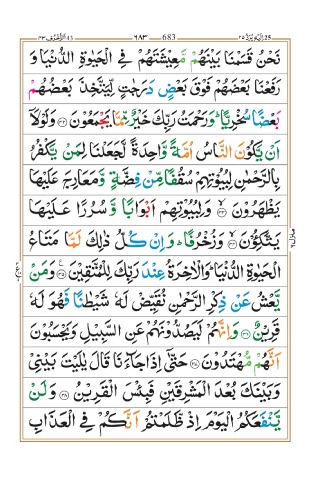 اِلَیْهِ یُرَدُّ ٢٥ ٦٨٣ 683 الزُّخْرُف ٤٣
نَحْنُ قَسَمْنَا بَیْنَهُمْ مَّعِیْشَتَهُمْ فِی الْحَیٰوةِ الدُّنْیَا وَ
رَفَعْنَا بَعْضَهُمْ فَوْقَ بَعْضٍ دَرَجٰتٍ لِّیَتَّخِذَ بَعْضُهُمْ
بَعْضًا سُخْرِیًّا ؕ وَرَحْمَتُ رَبِّكَ خَیْرٌ مِّمَّا یَجْمَعُوْنَ ٣٢ وَلَوْلَاۤ
اَنْ یَّكُوْنَ النَّاسُ اُمَّةً وَّاحِدَةً لَّجَعَلْنَا لِمَنْ یَّكْفُرُ
بِالرَّحْمٰنِ لِبُیُوْتِهِمْ سُقُفًا مِّنْ فِضَّةٍ وَّمَعَارِجَ عَلَیْهَا
یَظْهَرُوْنَ ٣٣ وَلِبُیُوْتِهِمْ اَبْوَابًا وَّسُرُرًا عَلَیْهَا
یَتَّكِـُٔوْنَ ٣٤ وَزُخْرُفًا ؕ وَاِنْ كُلُّ ذٰلِكَ لَمَّا مَتَاعُ
الْحَیٰوةِ الدُّنْیَا ؕ وَالْاٰخِرَةُ عِنْدَ رَبِّكَ لِلْمُتَّقِیْنَ ٣٥ وَمَنْ
یَّعْشُ عَنْ ذِكْرِ الرَّحْمٰنِ نُقَیِّضْ لَهٗ شَیْطٰنًا فَهُوَ لَهٗ
قَرِیْنٌ ٣٦ وَاِنَّهُمْ لَیَصُدُّوْنَهُمْ عَنِ السَّبِیْلِ وَیَحْسَبُوْنَ
اَنَّهُمْ مُّهْتَدُوْنَ ٣٧ حَتّٰۤی اِذَا جَآءَنَا قَالَ یٰلَیْتَ بَیْنِیْ
وَبَیْنَكَ بُعْدَ الْمَشْرِقَیْنِ فَبِئْسَ الْقَرِیْنُ ٣٨ وَلَنْ
یَّنْفَعَكُمُ الْیَوْمَ اِذْ ظَّلَمْتُمْ اَنَّكُمْ فِی الْعَذَابِ